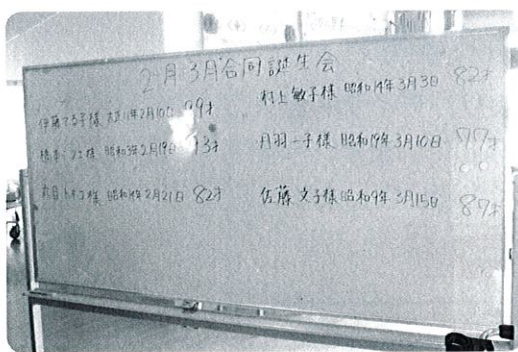 2月3月合同誕生会
伊藤てる子様 大正11年2月10日 99才
様 昭和3年2月19日 93才
トキコ様 昭和14年2月21日 82才
村上敏子様 昭和14年3月3日 82才
丹羽一子様 昭和19年3月10日 77才
佐藤文子様 昭和9年3月15日 87才